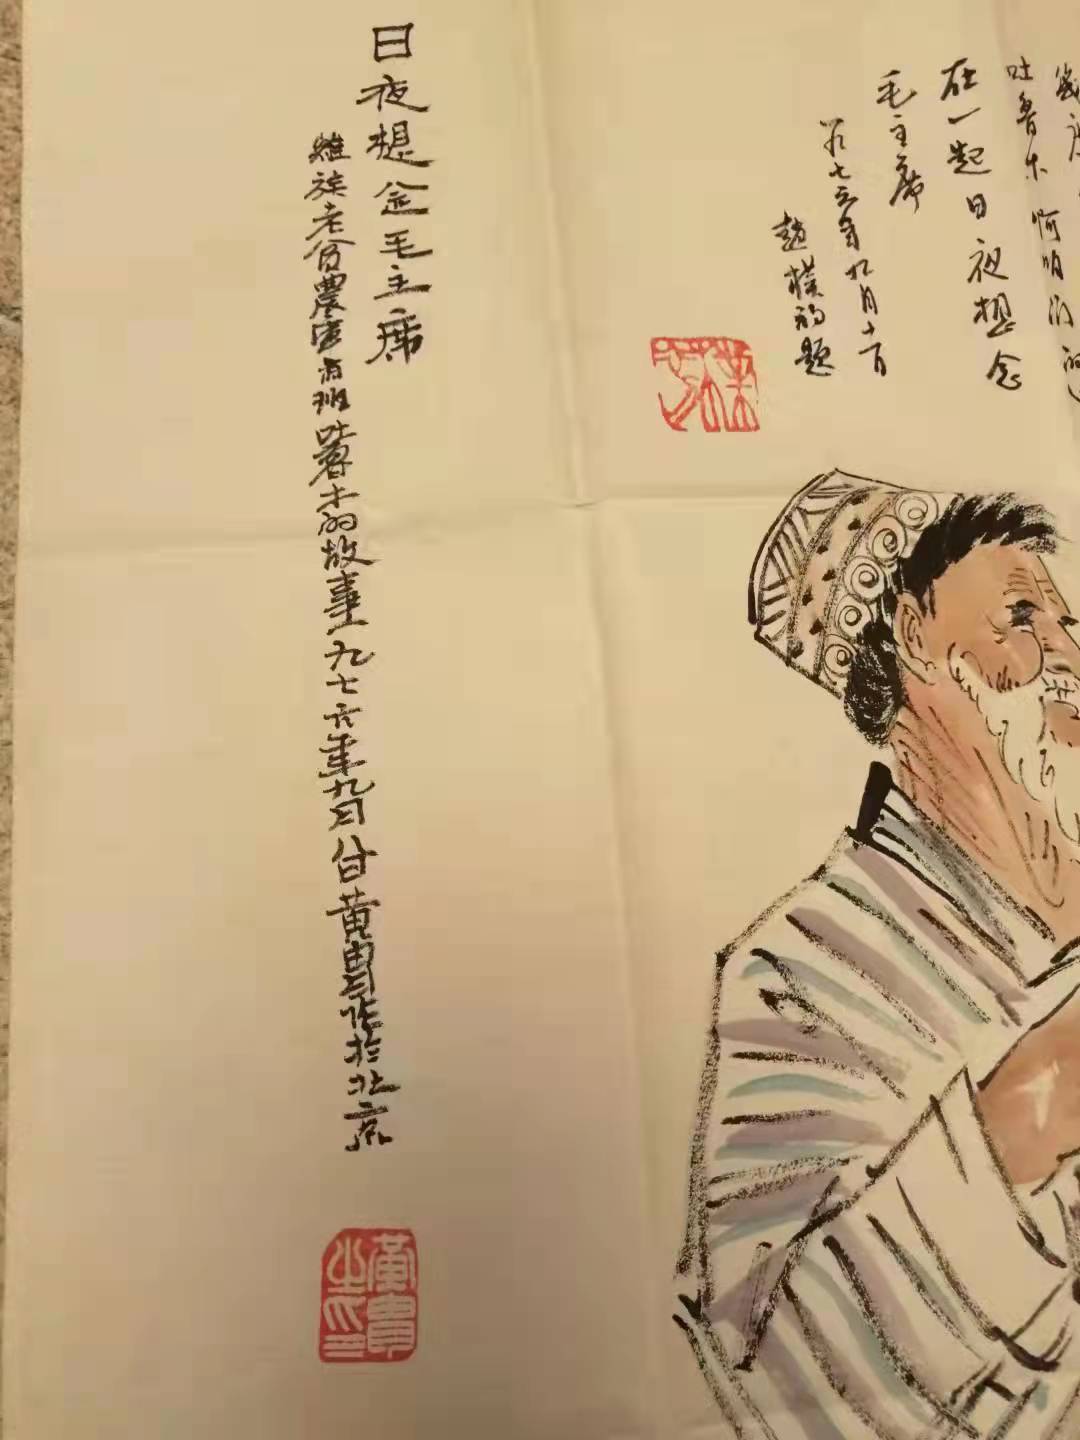 吐鲁木啊咱们的
在一起日夜想念
毛主席
一九七六年九月十一日
趙樸初題
日夜想念毛主席
維族老貧農庫尔班吐鲁木的故事一九七六年九月廿日黄胄作於北京
黄胄之印